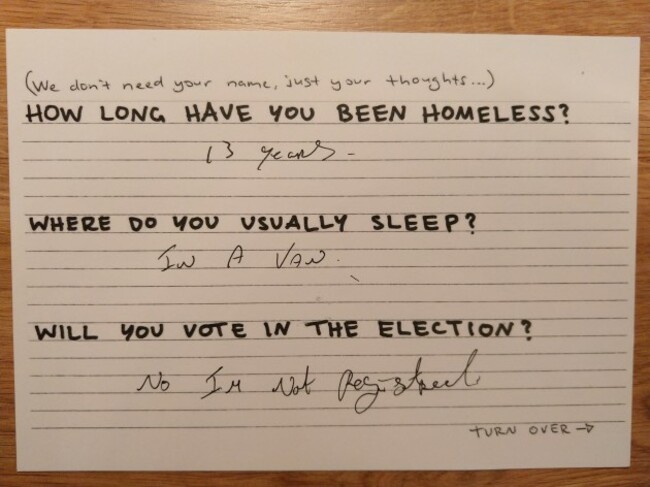 (We don't need your name, just your thoughts...)
HOW LONG HAVE YOU BEEN HOMELESS?
13 years -
WHERE DO YOU USUALLY SLEEP?
IN A VAN.
WILL YOU VOTE IN THE ELECTION?
No Im Not Registred
TURN OVER →